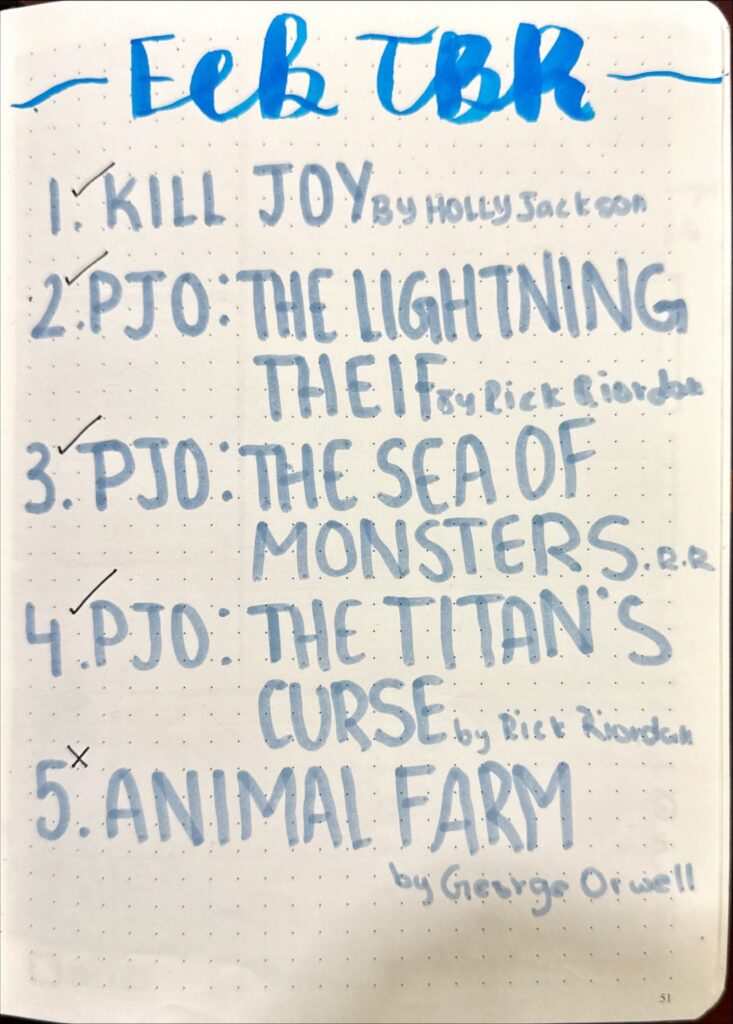 Feb TBR
1. KILL JOY By HOLLY Jackson
2. PJO: THE LIGHTNING
THEIF By Rick Riordan
3. PJO: THE SEA OF
MONSTERS. R.R
4. PJO: THE TITAN'S
CURSE by Rick Riordan
5. ANIMAL FARM
by George Orwell
51